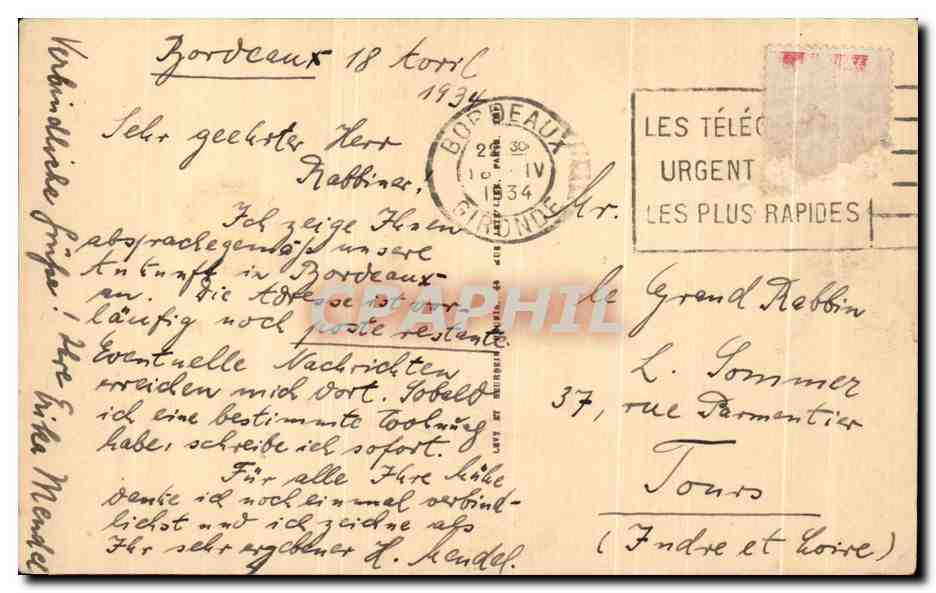 Bordeaux 18 Avril
1934
Sehr geehrter Herr
Rabbiner!
Ich zeige Ihnen
absprachegemäß unsere
Ankunft in Bordeaux
an. Die Adresse ist vor-
läufig noch poste restante.
Eventuelle Nachrichten
erreichen mich dort. Sobald
ich eine bestimmte Wohnung
habe, schreibe ich sofort.
Für alle Ihre Mühe
danke ich noch einmal verbind-
lichst und ich zeichne als
Ihr sehr ergebener H. Mendel.
Verbindliche Grüße! Ihre Erika Mendel
BORDEAUX
30
18 IV
1934
GIRONDE
LES TÉLÉG
URGENT
LES PLUS RAPIDES
Mr.
le Grand Rabbin
L. Sommer
37, rue Parmentier
Tours
(Indre et Loire)
LEVY ET NEURDEIN REUNIS, 44 RUE LETELLIER, PARIS
CPAPHIL